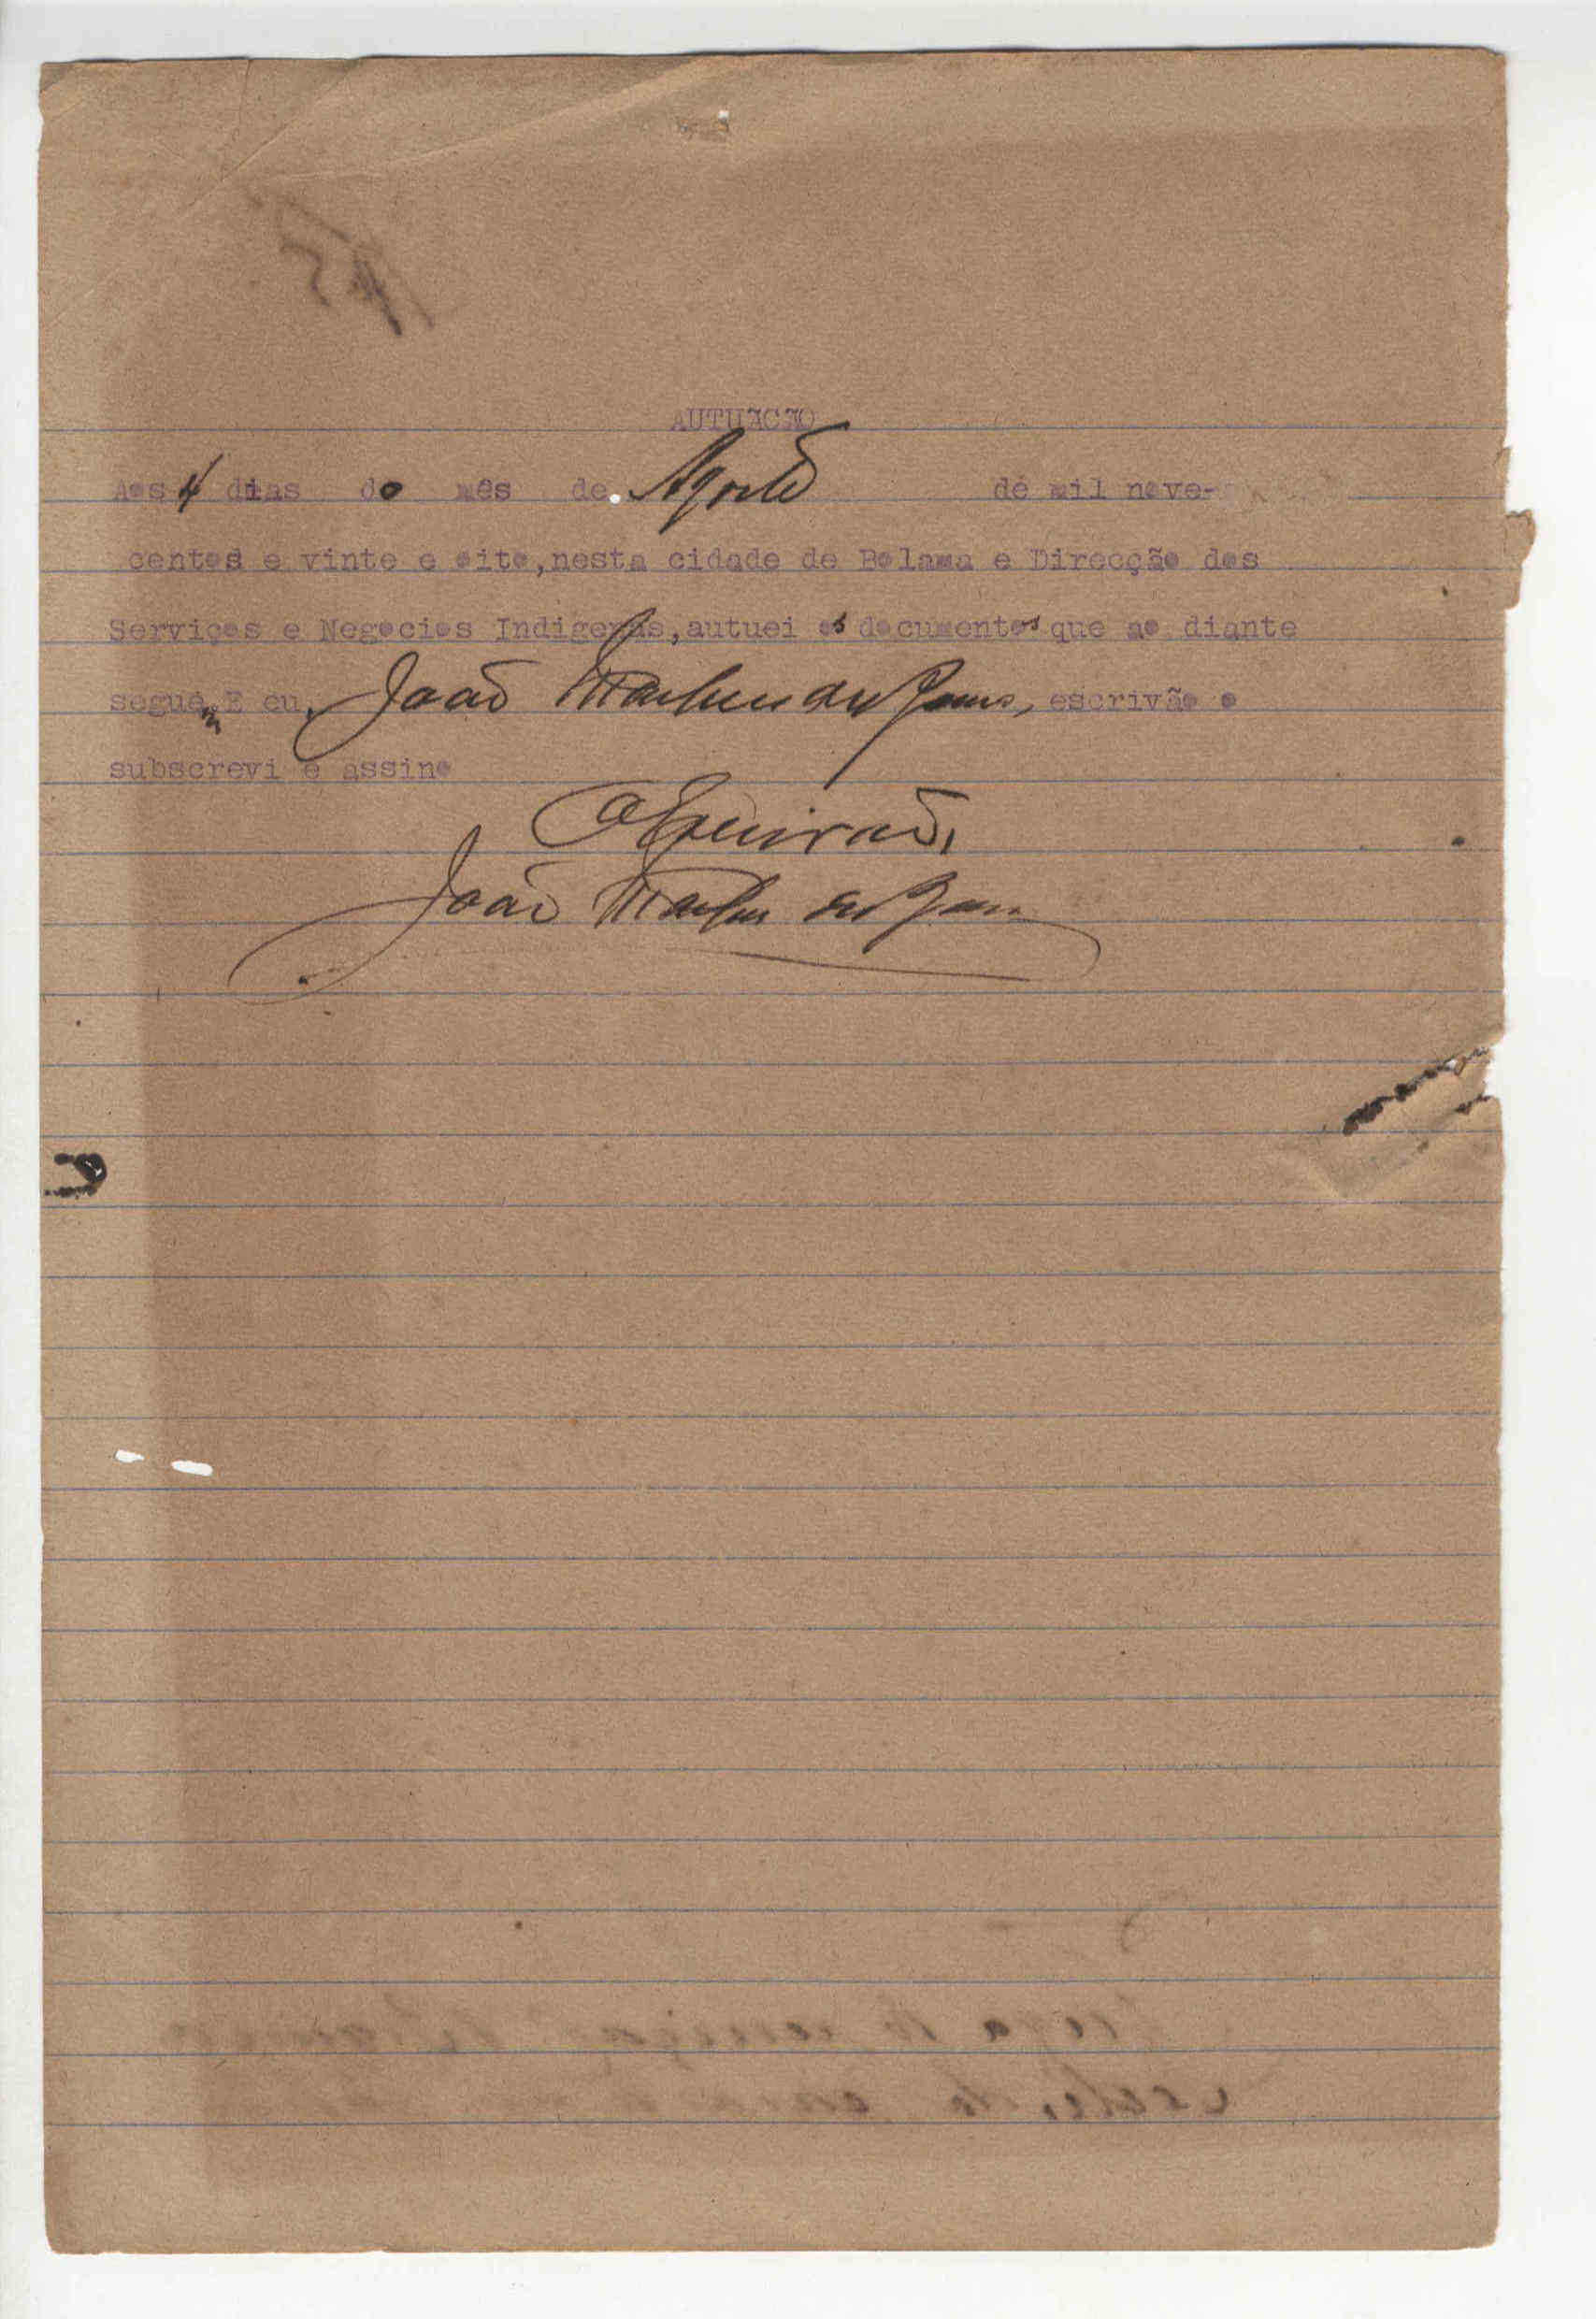 AUTUAÇÃO
Aos 4 dias do mês de Agosto de mil nove-
centos e vinte e oito, nesta cidade de Bolama e Direcção dos
Serviços e Negocios Indigenas, autuei os documentos que ao diante
seguem. E eu, João , escrivão o
subscrevi e assino
O Escrivão,
João